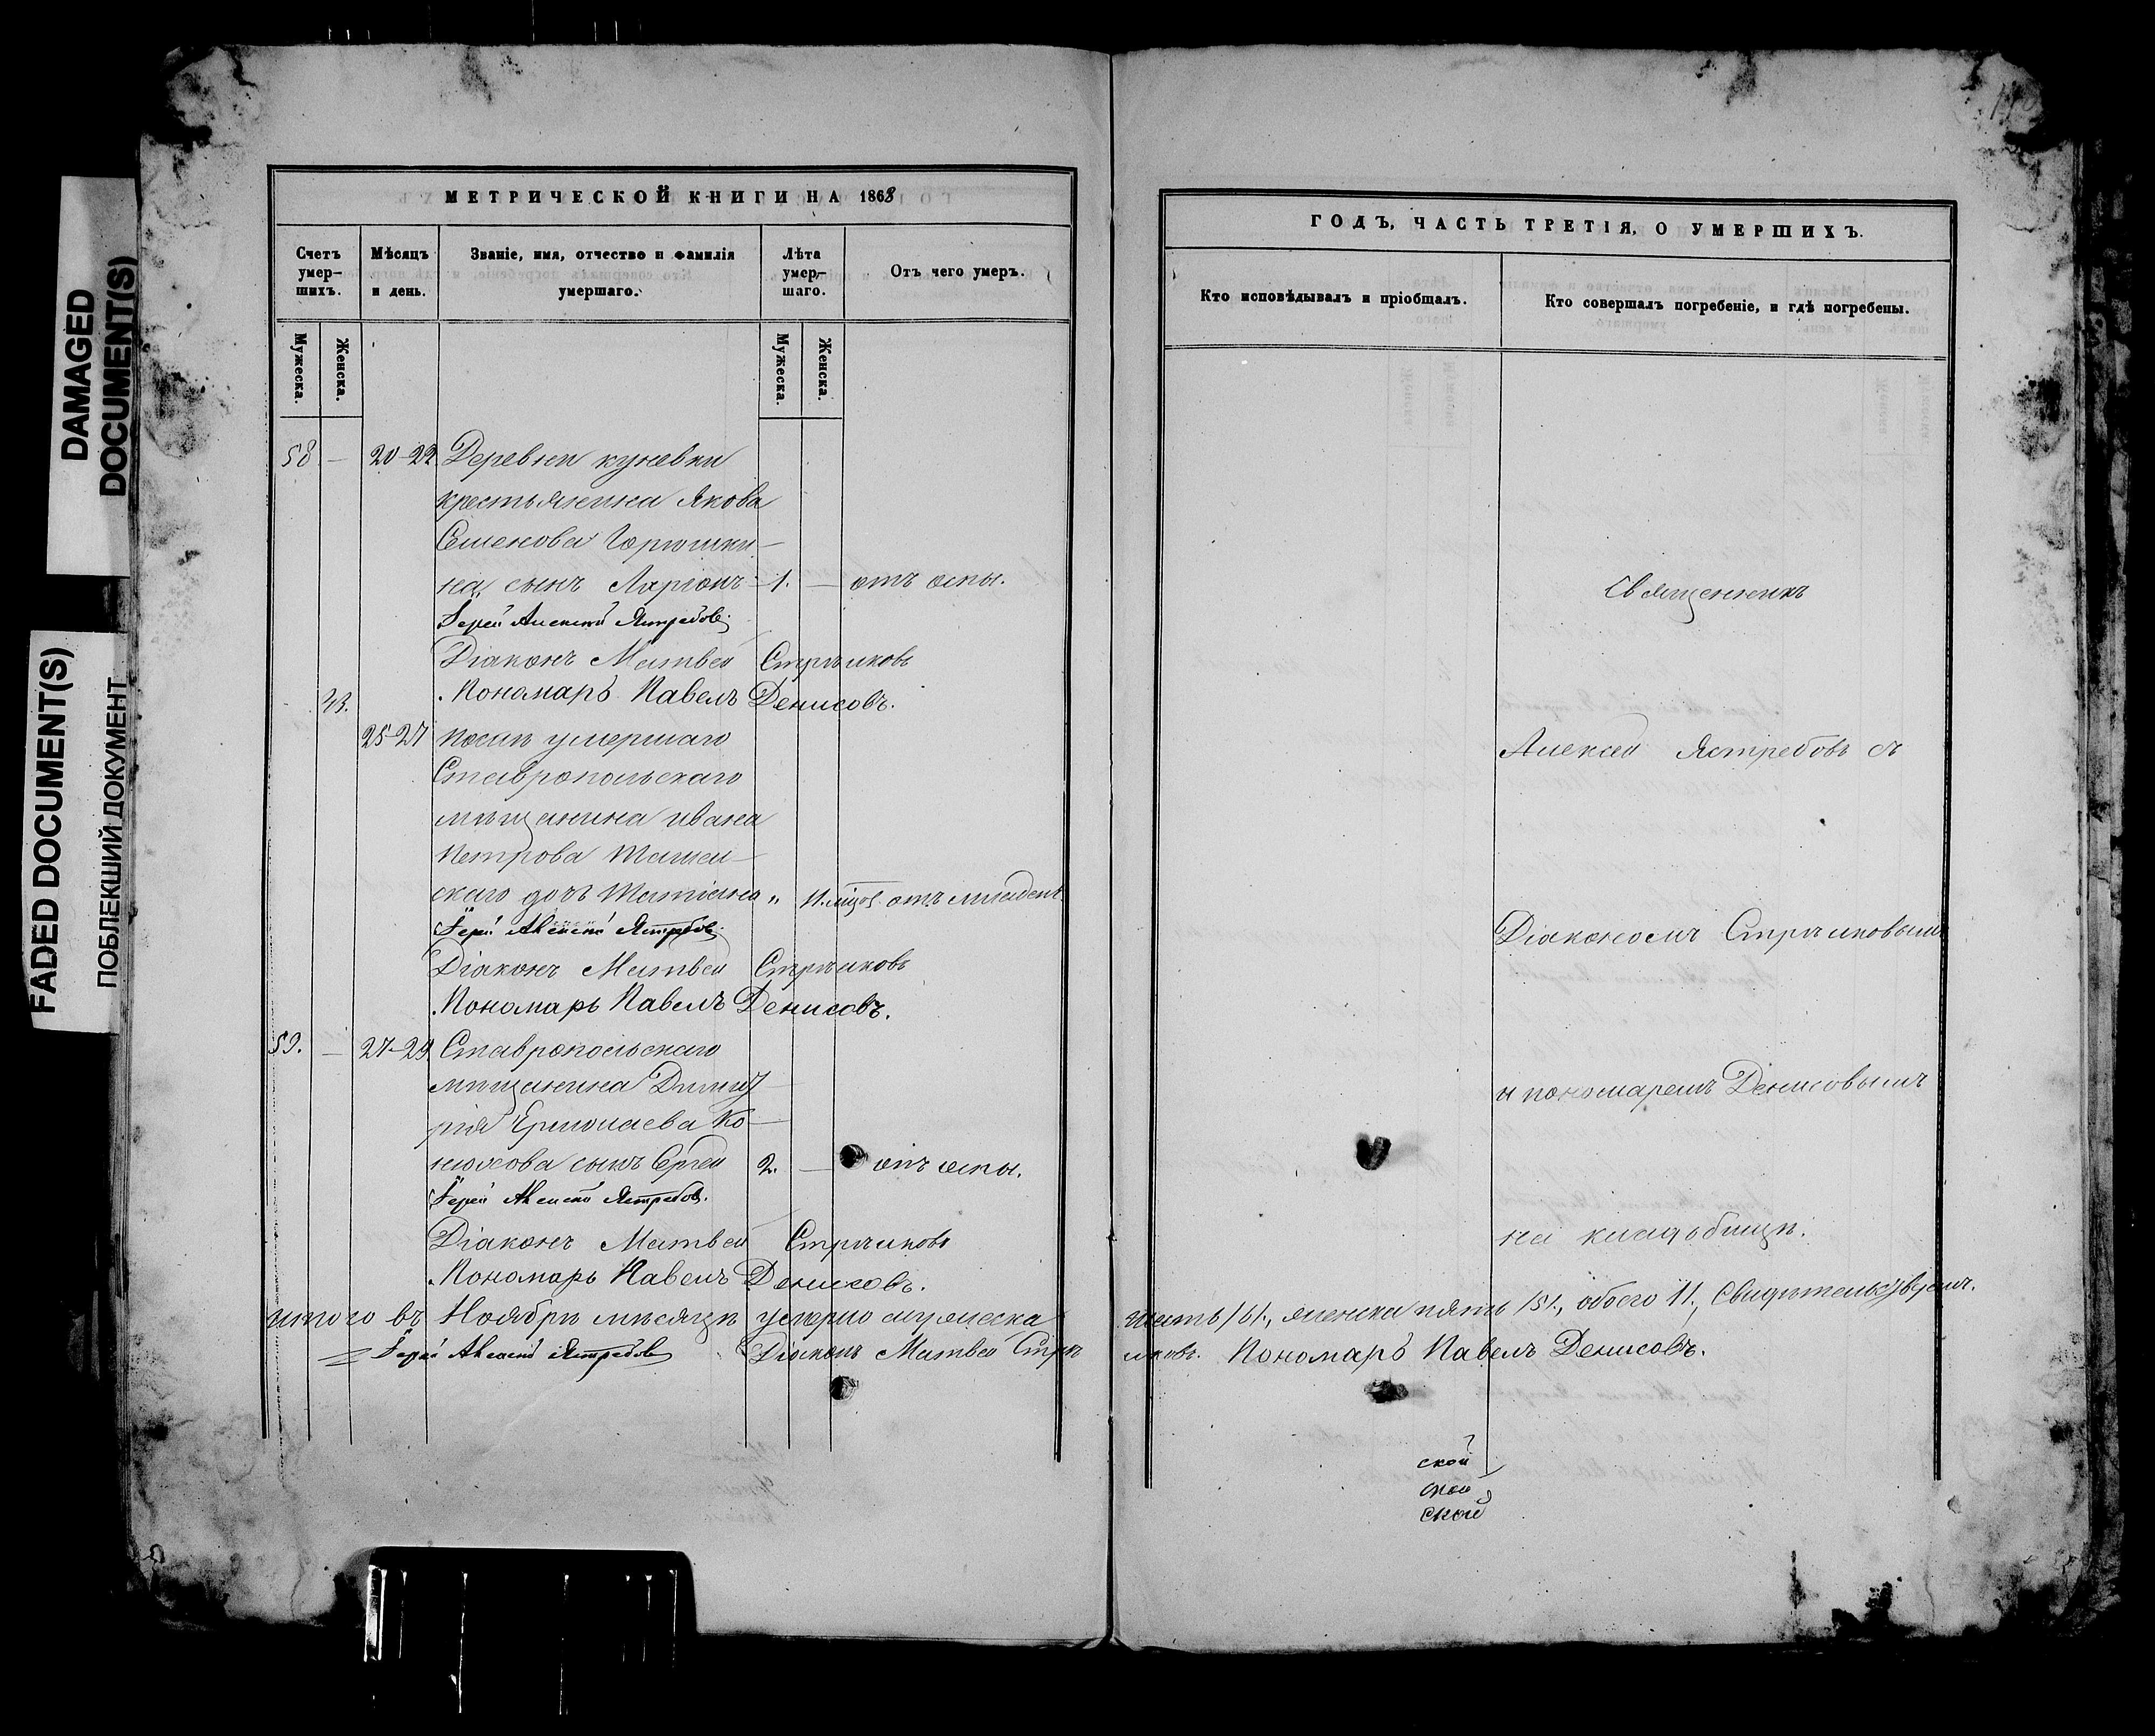 DAMAGED
DOCUMENT(S)
FADED DOCUMENT(S)
ПОБЛЕКШИЙ ДОКУМЕНТ
МЕТРИЧЕСКОЙ КНИГИ НА 1868
Счетъ умер-шихъ.
Мѣсяцъ и день.
Званіе, имя, отчество и фамилія умершаго.
Лѣта умер-шаго.
Отъ чего умеръ.
Мужеска.
Женска.
Мужеска.
Женска.
58 — 20-22 Деревни
крестьянина Якова
Семенова Горюшки-
на, сынъ Ларіонъ 1. — отъ оспы.
Іерей Алексій Ястребовъ.
Діаконъ Матвей Стрѣлковъ
Пономарь Павелъ Денисовъ.
43.
25-27 послѣ умершаго
Ставропольскаго
мѣщанина Ивана
Петрова
скаго дочь Татіана „ 11. мѣсо. отъ младенч.
Іерей Алексій Ястребовъ.
Діаконъ Матвей Стрѣлковъ
Пономарь Павелъ Денисовъ.
59. — 27-29 Ставропольскаго
мѣщанина Димит
рія Ермолаева Ко-
сынъ Сергей 2. — отъ оспы.
Іерей Алексій Ястребовъ.
Діаконъ Матвей Стрѣлковъ
Пономарь Павелъ Денисовъ.
итого въ Ноябрѣ мѣсяцѣ умерло мужеска
Іерей Алексій Ястребовъ Діаконъ Матвей Стрѣ
ГОДЪ, ЧАСТЬ ТРЕТІЯ, О УМЕРШИХЪ.
Кто исповѣдывалъ и пріобщалъ.
Кто совершалъ погребеніе, и гдѣ погребены.
Священникъ
Алексей Ястребовъ съ
Діакономъ Стрѣлковымъ
и пономаремъ Денисовымъ
на кладбищѣ.
шесть /6/., женска пять /5/., обоего 11., Свидѣтельствуемъ.
лковъ. Пономарь Павелъ Денисовъ.
ской
ской
ской